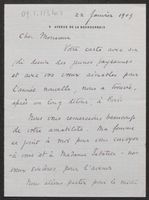 22 Janvier 1909
9 AVENUE DE LA BOURDONNAIS
Cher Monsieur
Votre carte avec ses
deux jeunes paysannes
et avec vos vœux aimables pour
l'année nouvelle, nous a trouvé,
après un long détour, à Paris
Nous vous remercions beaucoup
de votre amabilité. Ma femme
se joint à moi pour vous envoyer
à vous et à Madame Sabatier nos
vœux sincères pour l'avenir
Nous allons partir pour le midi